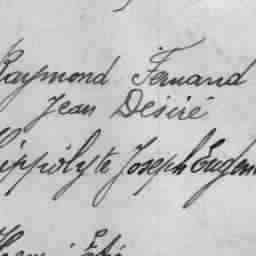 Raymond Fernand
Jean Désiré
Hippolyte Joseph Eugène